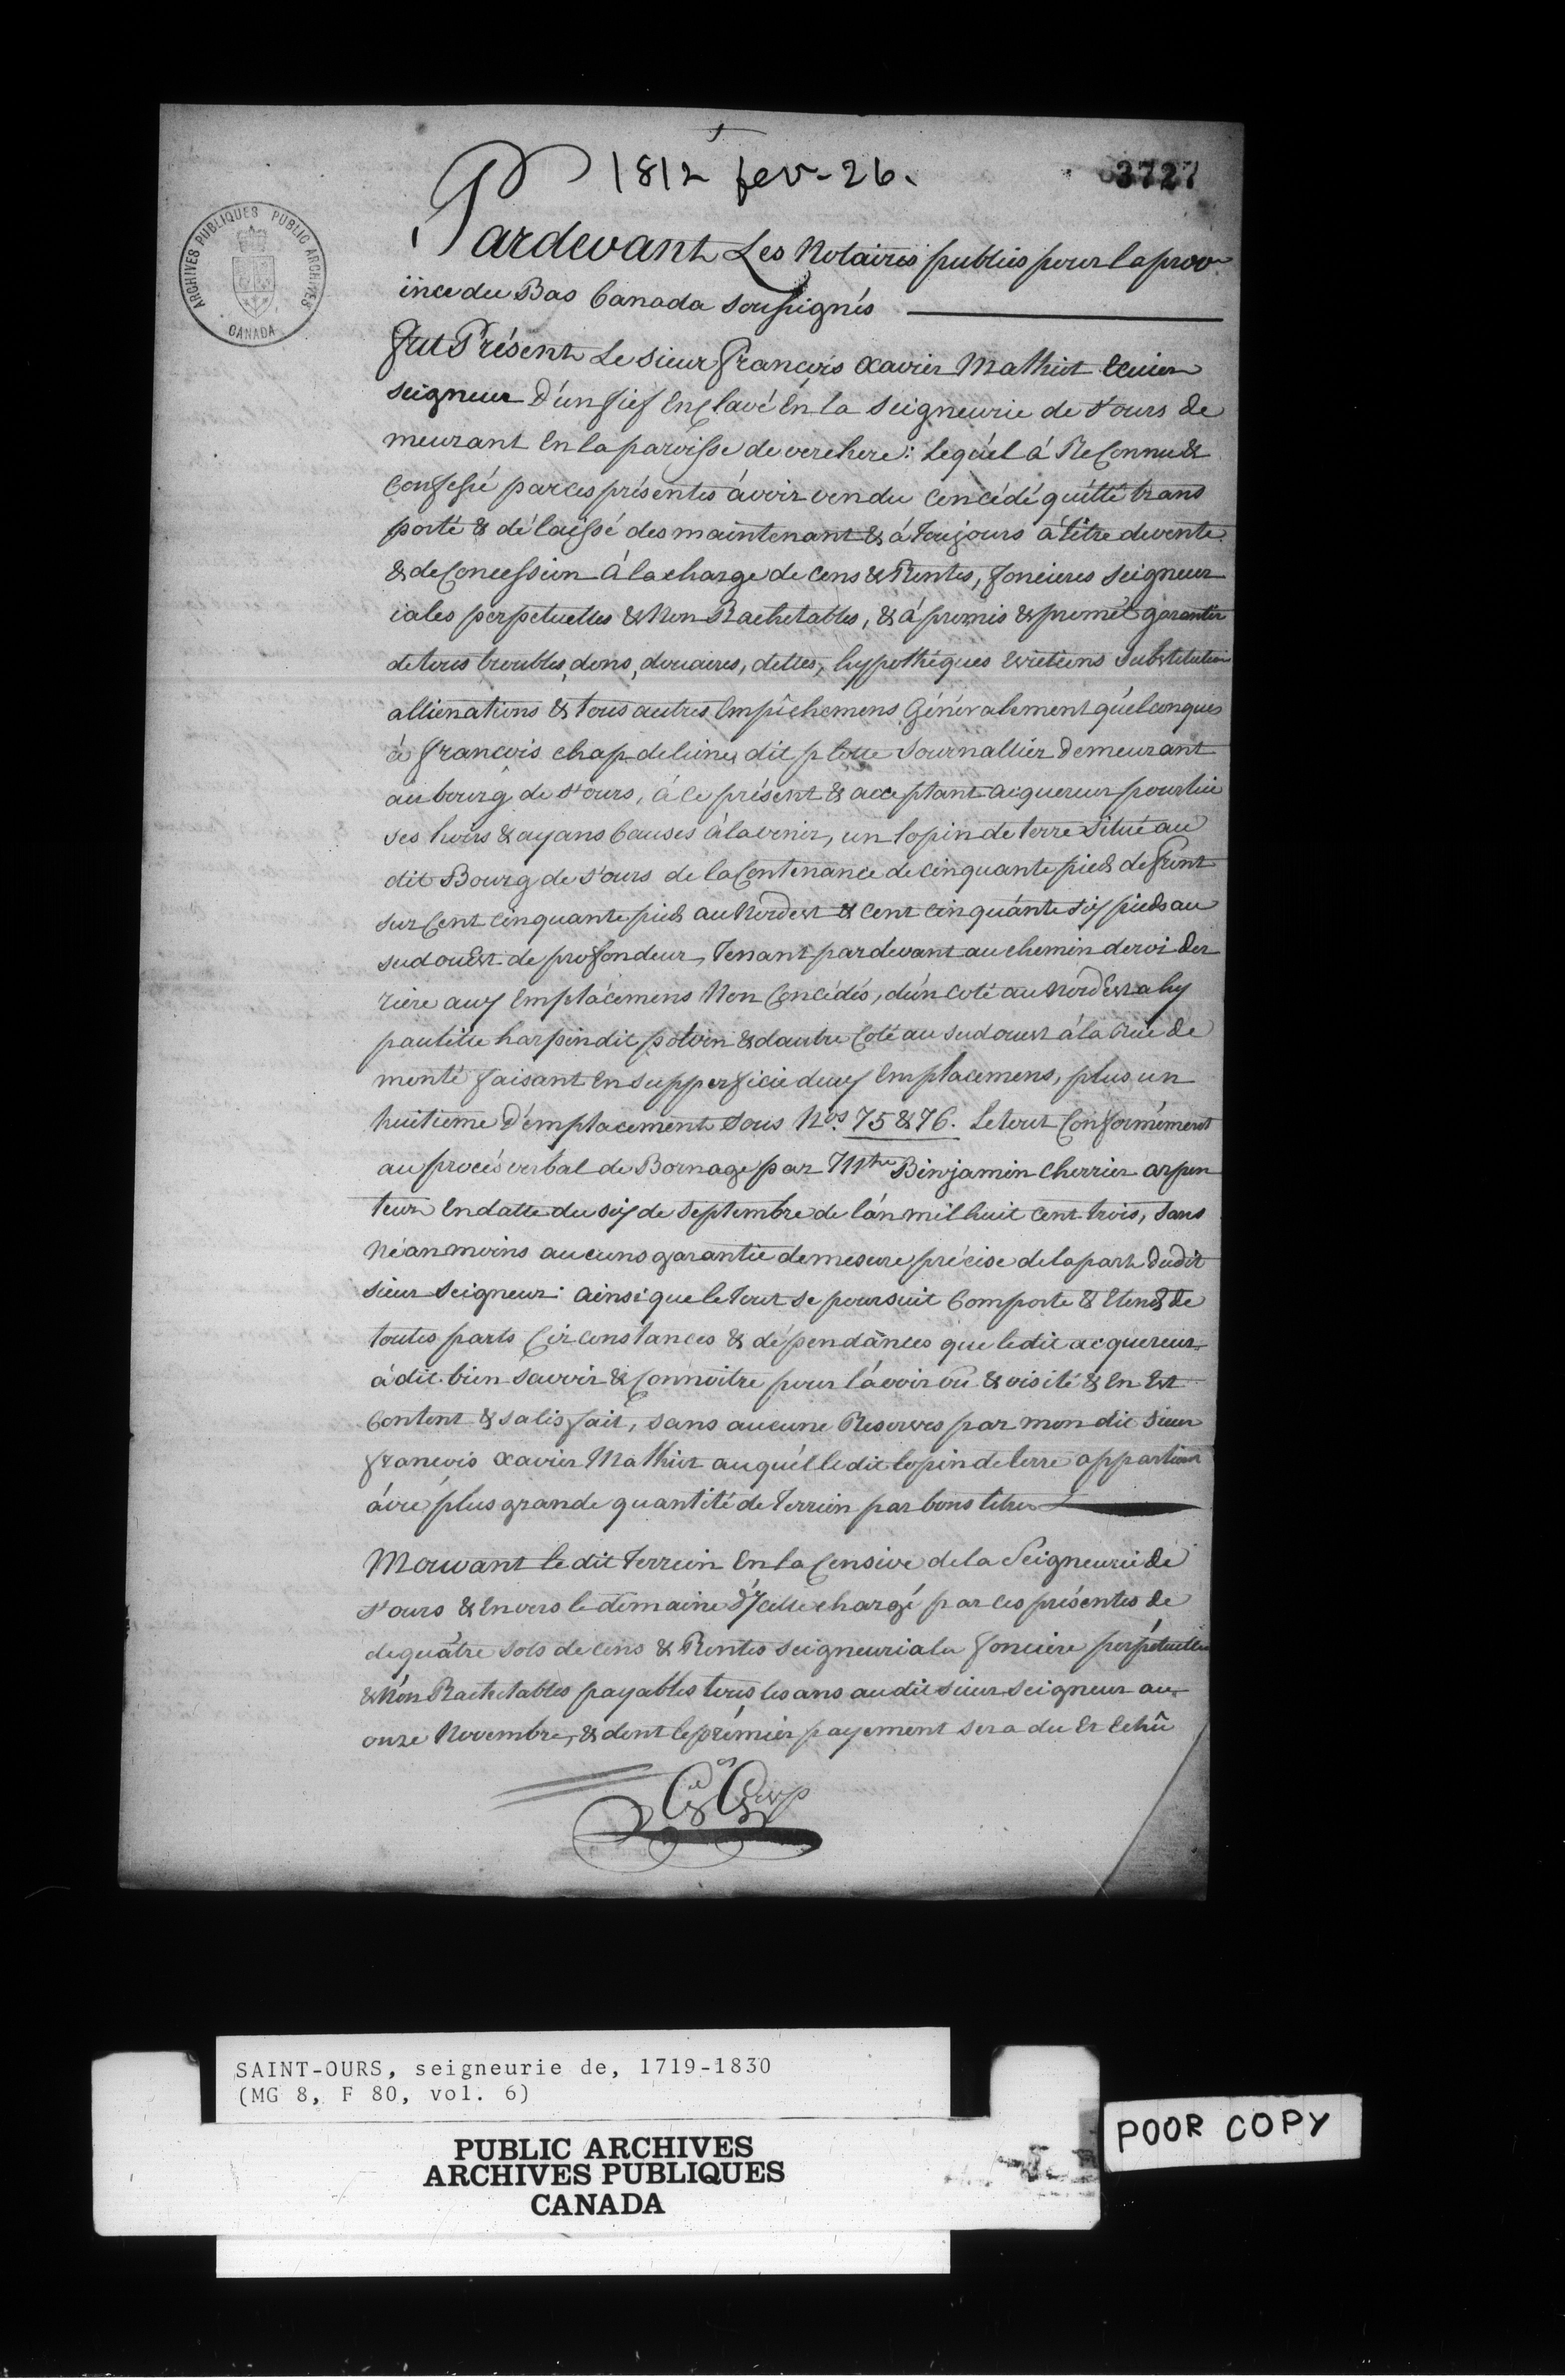 1812 fev - 26.
3727
ARCHIVES PUBLIQUES PUBLIC ARCHIVES
CANADA
Pardevant Les Notaires publics pour la prov
ince du Bas Canada Soussignés
Fut Présent Le Sieur François Xavier Mathiot Ecuier
seigneur D'un fief Enclavé En la Seigneurie de St ours De
meurant En la paroisse de verchere: Lequel à ReConnu &
Confessé par ces présentes avoir vendu concédé quitté trans
porté & délaissé des maintenant & à Toujours à titre de vente
& de Concession à la charge de Cens & Rentes, foncieres Seigneur
iales perpetuelles & Non Rachetables, & à promis & promet garantir
de tous troubles, dons, douaires, dettes, hypothéques Evictions Substitution
allienations & tous autres Empêchemens Généralement quelconques
à François chapdeline dit Journallier Demeurant
au bourg de St ours, à ce présent & acceptant acquereur pour lui
ses hoirs & ayans Causes à lavenir, un lopin de terre Situé au
dit Bourg de St ours de la Contenance de cinquante pieds de front
sur Cent cinquante pieds au Nordest & cent cinquante six pieds au
sudouest de profondeur, Tenant pardevant au chemin de roi Der
riere aux Emplacemens Non Concédés, d'un coté au Nordest a hy
paulitte harpin dit potvin & dautre Coté au sudouest à la Rue de
monté faisant En supperficie deux Emplacemens, plus un
huitieme D'emplacement Sous Nos. 75 & 76. Le tout Conformément
au procés verbal de Bornage par Mtre Binjamin Cherrier arpen
teur En datte du six de Septembre de l'an mil huit cent trois, sans
Néanmoins aucuns garantie de mesure précise de la part Dudit
sieur Seigneur: ainsi que le Tout se poursuit Comporte & Etend De
toutes parts Circonstances & dépendances que le dit acquereur
à dit bien savoir & Connoitre pour l'avoir vu & visité & En Est
Content & satisfait, sans aucune Reserves par mon dit Sieur
François Xavier Mathiot auquel le dit lopin de terre appartient
avec plus grande quantité de Terrein par bons titres
Mouvant le dit Terrein En la Censive de la Seigneurie de
St ours & Envers le domaine d'ycelle chargé par ces présentes de
de quatre sols de cens & Rentes seigneuriale fonciere perpétuelles
& Non Rachetables payables tous les ans au dit sieur Seigneur au
onze Novembre, & dont le prémier payement sera du Et Echû
SAINT-OURS, seigneurie de, 1719-1830
(MG 8, F 80, vol. 6)
PUBLIC ARCHIVES
ARCHIVES PUBLIQUES
CANADA
POOR COPY